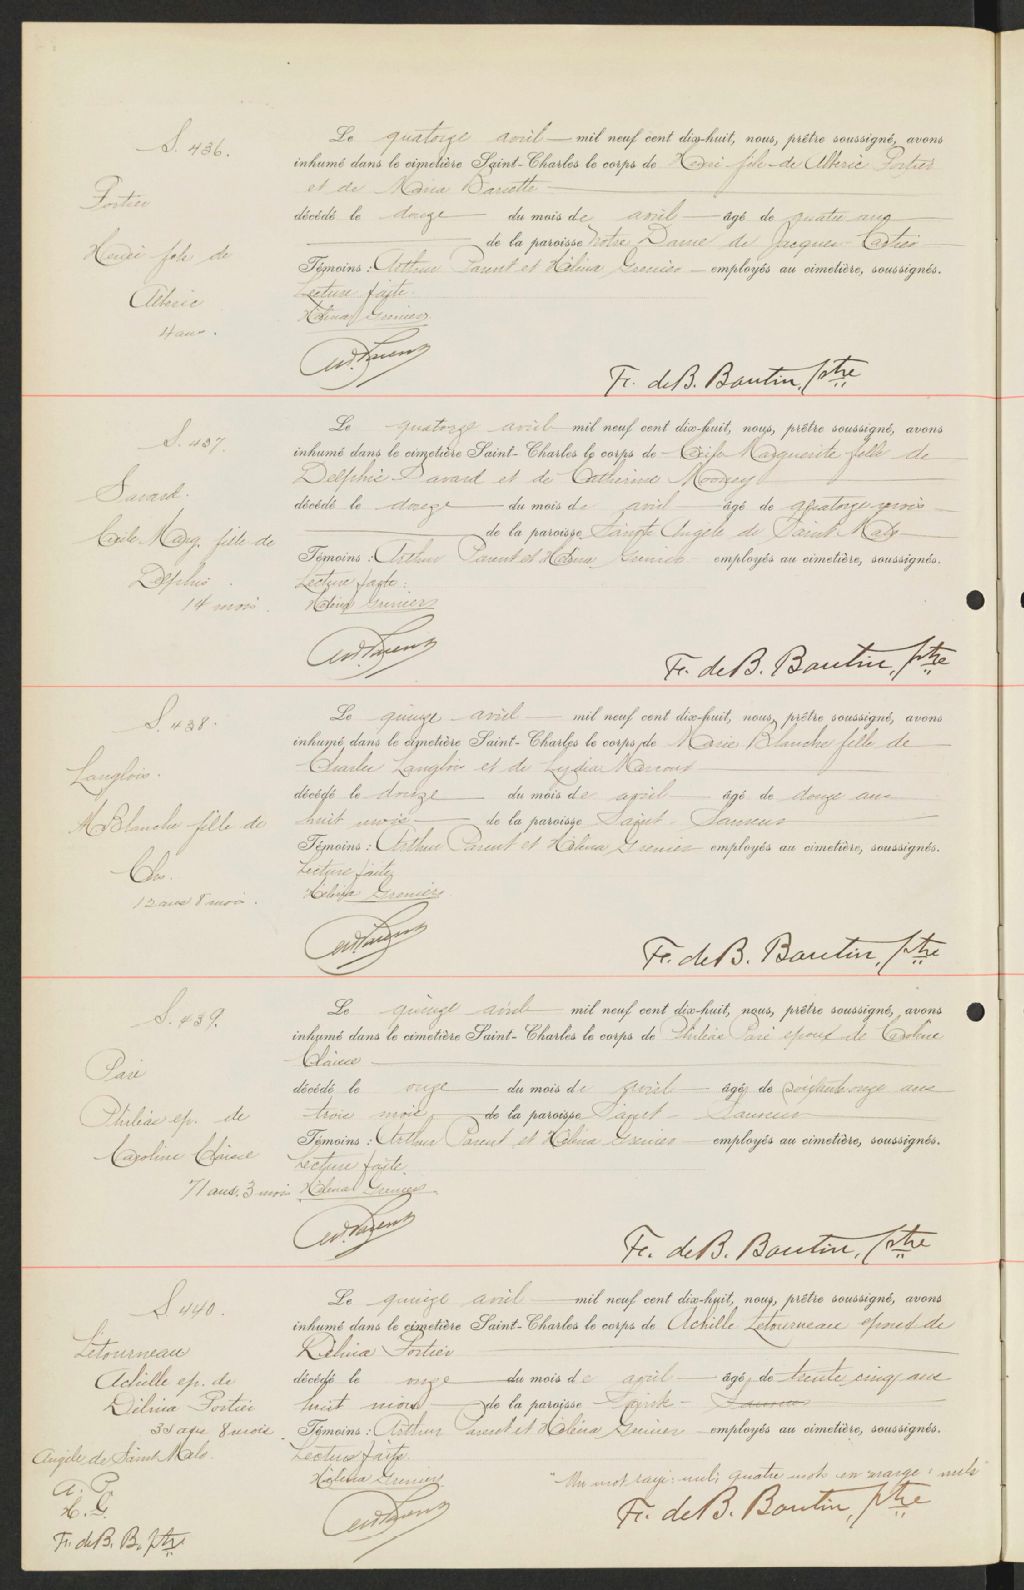 S. 436.
Fortier
Henri fils de
Alberic
4 ans.
Le quatorze avril mil neuf cent dix-huit, nous, prêtre soussigné, avons
inhumé dans le cimetière Saint-Charles le corps de Henri fils de Alberic Fortier
et de Maria
décédé le douze du mois de avril âgé de quatre ans
de la paroisse Notre Dame de Jacques-Cartier
Témoins : Arthur Parent et Héléna Grenier employés au cimetière, soussignés.
Lecture faite.
Héléna Grenier
Art. Parent
Fr. de B. Boutin, ptre
S. 437.
Savard.
Cécile Marg. fille de
Delphis.
14 mois.
Le quatorze avril mil neuf cent dix-huit, nous, prêtre soussigné, avons
inhumé dans le cimetière Saint-Charles le corps de Cécile Marguerite fille de
Delphis Savard et de Catherine Mooney
décédé le douze du mois de avril âgé de quatorze mois
de la paroisse Sainte Angèle de Saint Malo
Témoins : Arthur Parent et Héléna Grenier employés au cimetière, soussignés.
Lecture faite.
Héléna Grenier
Art. Parent
Fr. de B. Boutin, ptre
S. 438.
Langlois.
M Blanche fille de
Chs.
12 ans 8 mois.
Le quinze avril mil neuf cent dix-huit, nous, prêtre soussigné, avons
inhumé dans le cimetière Saint-Charles le corps de Marie Blanche fille de
Charles Langlois et de Lydia
décédé le douze du mois de avril âgé de douze ans
huit mois de la paroisse Saint-Sauveur
Témoins : Arthur Parent et Héléna Grenier employés au cimetière, soussignés.
Lecture faite
Héléna Grenier
Art. Parent
Fr. de B. Boutin, ptre
S. 439.
Paré
Philéas ep. de
Caroline
71 ans. 3 mois
Le quinze avril mil neuf cent dix-huit, nous, prêtre soussigné, avons
inhumé dans le cimetière Saint-Charles le corps de Philéas Paré époux de Caroline
décédé le onze du mois de avril âgé de soixante onze ans
trois mois de la paroisse Saint-Sauveur
Témoins : Arthur Parent et Héléna Grenier employés au cimetière, soussignés.
Lecture faite
Héléna Grenier
Art. Parent
Fr. de B. Boutin, ptre
S. 440.
Létourneau
Achille ep. de
Délina Fortier
35 ans 8 mois.
Angèle de Saint Malo.
A. P.
H. G.
Fr. de B. B. ptre
Le quinze avril mil neuf cent dix-huit, nous, prêtre soussigné, avons
inhumé dans le cimetière Saint-Charles le corps de Achille Létourneau époux de
Délina Fortier
décédé le onze du mois de avril âgé de trente cinq ans
huit mois de la paroisse Sainte-Sauveur
Témoins : Arthur Parent et Héléna Grenier employés au cimetière, soussignés.
Lecture faite.
Héléna Grenier
"Un mot rayé: nul; quatre mots en marge: nuls"
Art. Parent
Fr. de B. Boutin, ptre